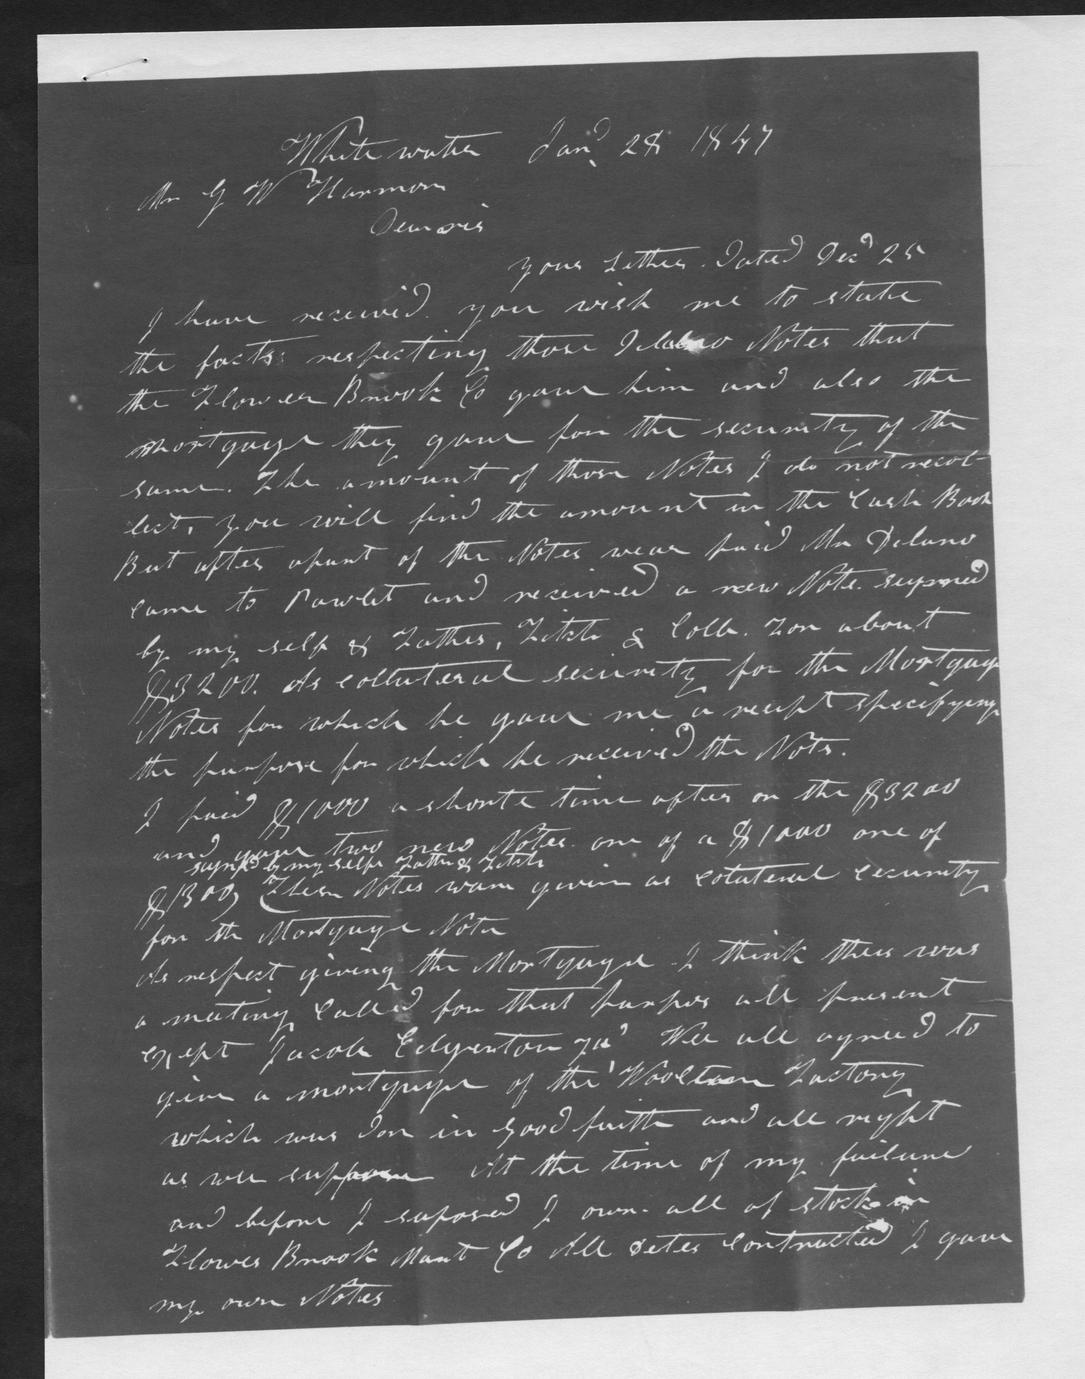 White water Jany 28 1847
Mr G W Harmon
Dear sir
your Letter Dated Decr 25
I have received. you wish me to state
the facts respecting those Delano Notes that
the Flower Brook Co gave him and also the
mortgage they gave for the security of the
same. The amount of those Notes I do not recol-
lect, you will find the amount in the Cash Book
But after apart of the Notes wear paid Mr Delano
came to Pawlet and received a new Note. suposed
by my self & Father, Fitch & Colb. Fon about
$3200. As collateral security for the Mortgage
Notes for which he gave me a recipt specifying
the purpose for which he received the Nots.
I paid $1000 a shorte time after on the $3200
and gave two new Notes one of a $1000 one of
signed by my selfe Father & Fitch
$1300, These Notes ware given as Colateral Security
for th Mortgage Note
As respect giving the Mortgage I think there was
a meting Called for that purpos all present
exept Jacob Edgerton Jr Wee all agreed to
give a mortgage of the Woolen Factory
which was don in Good faith and all right
as wee suppose At the time of my failure
and before I suposed I own all of stock in
Flower Brook Mant Co All Detes Contracted I gave
my own Notes